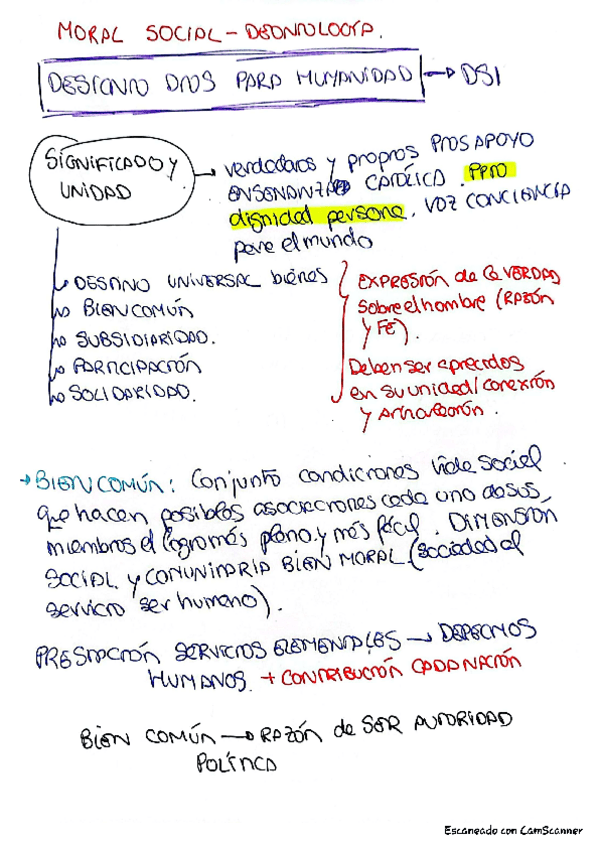 MORAL SOCIAL - DEONTOLOGÍA.
DESIGNIO DIOS PARA HUMANIDAD → DSI
SIGNIFICADO Y
UNIDAD
→ verdaderos y propios PROS APOYO
ENSEÑANZA CATÓLICA. PPIO
dignidad persona. VOZ CONCIENCIA
para el mundo
DESTINO UNIVERSAL bienes
BIEN COMÚN
SUBSIDIARIDAD.
PARTICIPACIÓN
SOLIDARIDAD.
EXPRESIÓN de la VERDAD
sobre el hombre (RAZÓN
Y FE).
Deben ser apreciados
en su unidad/conexión
y Articulación.
→ BIEN COMÚN: Conjunto condiciones vida social
que hacen posibles asociaciones cada uno de sus
miembros el logro más pleno y más fácil. DIMENSIÓN
SOCIAL y COMUNITARIA BIEN MORAL (sociedad al
servicio ser humano).
PRESTACIÓN SERVICIOS ELEMENTALES → DERECHOS
HUMANOS. + CONTRIBUCIÓN CADA NACIÓN
BIEN COMÚN → RAZÓN de SER AUTORIDAD
POLÍTICA
Escaneado con CamScanner